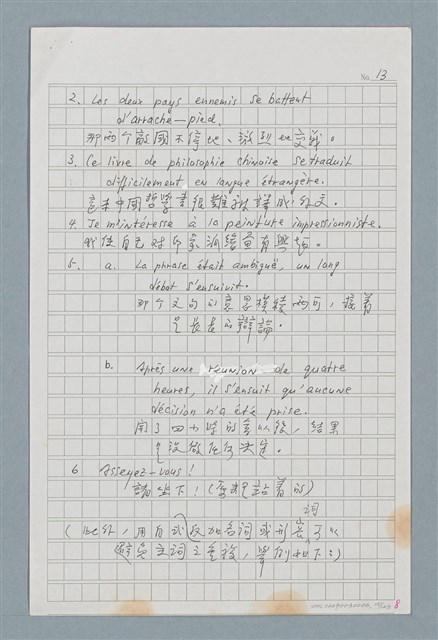 No. 13
2. Les deux pays ennemis se battent
d'arrache-pied.
那兩个敵國不停地、激烈地交戰。
3. Ce livre de philosophie chinoise se traduit
difficilement en langue étrangère.
這本中國哲學書很難被譯成外文。
4. Je m'intéresse à la peinture impressionniste.
我使自己對印象派繪畫有興趣。
5. a. La phrase était ambiguë, un long
débat s'ensuivit.
那个文句的意思模稜兩可,接着
是長長的辯論。
b. Après une réunion de quatre
heures, il s'ensuit qu'aucune
décision n'a été prise.
開了四小時的會以後,結果
是沒做任何決定。
6 Asseyez-vous!
請坐下!(原來站着的)
詞
(此外,用自或反加名詞或形容
避免主詞之重複,舉例如下:)
8